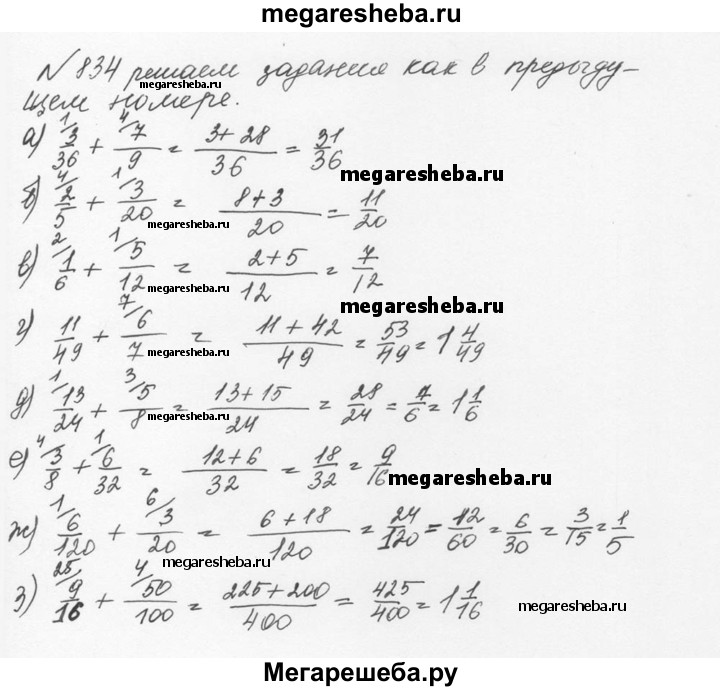 megaresheba.ru
№834 решаем задания как в предыду-
megaresheba.ru
щем номере.
а) 1/ 3/36 + 4/ 7/9 = (3+28)/36 = 31/36
megaresheba.ru
б) 4/ 2/5 + 1/ 3/20 = (8+3)/20 = 11/20
megaresheba.ru
в) 2/ 1/6 + 1/ 5/12 = (2+5)/12 = 7/12
megaresheba.ru
megaresheba.ru
г) 11/49 + 7/ 6/7 = (11+42)/49 = 53/49 = 1 4/49
megaresheba.ru
д) 1/ 13/24 + 3/ 5/8 = (13+15)/24 = 28/24 = 7/6 = 1 1/6
megaresheba.ru
е) 4/ 3/8 + 1/ 6/32 = (12+6)/32 = 18/32 = 9/16
megaresheba.ru
ж) 1/ 6/120 + 6/ 3/20 = (6+18)/120 = 24/120 = 12/60 = 6/30 = 3/15 = 1/5
megaresheba.ru
з) 25/ 9/16 + 4/ 50/100 = (225+200)/400 = 425/400 = 1 1/16
megaresheba.ru
megaresheba.ru
Мегарешеба.ру